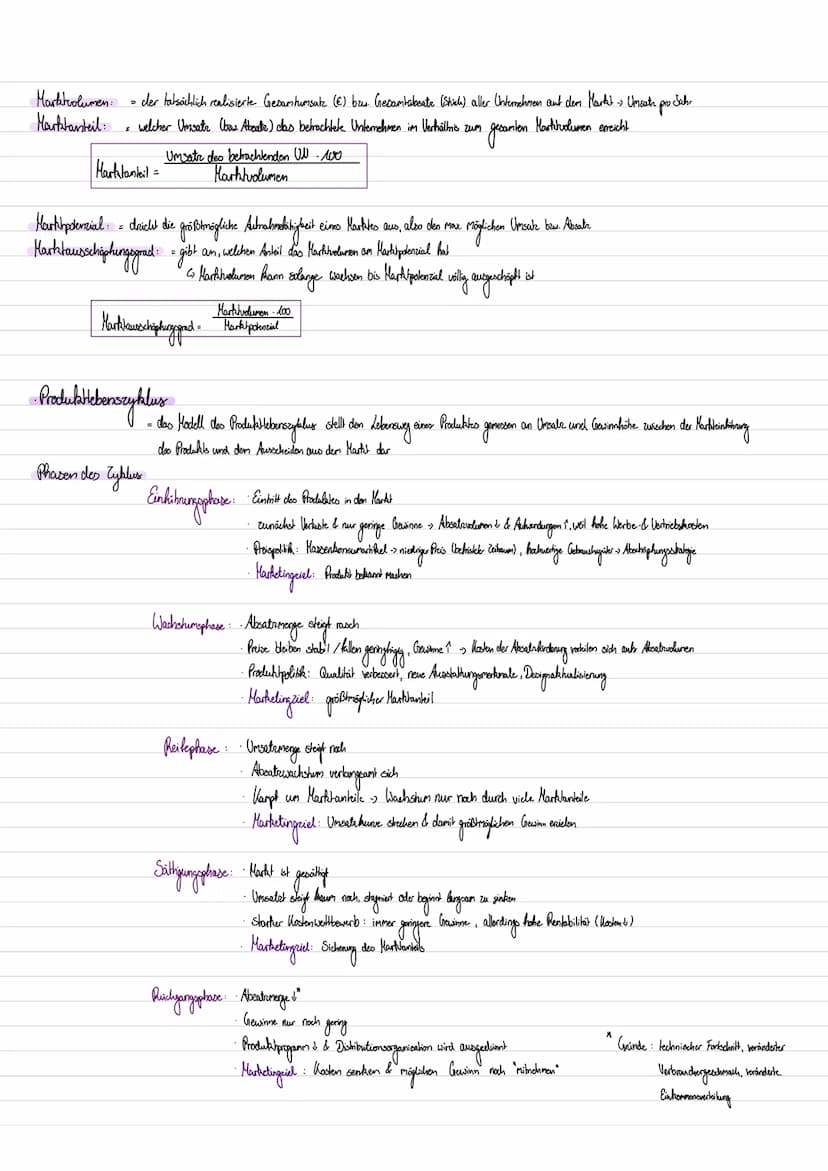 Marktvolumen: = der tatsächlich realisierte Gesamtumsatz (€) bzw. Gesamtabsatz (Stück) aller Unternehmen auf dem Markt → Umsatz pro Jahr
Marktanteil: = welcher Umsatz (bzw. Absatz) das betrachtete Unternehmen im Verhältnis zum gesamten Marktvolumen erreicht
Umsatz des betrachtenden UN · 100
Marktanteil =
Marktvolumen
Marktpotenzial: = drückt die größtmögliche Aufnahmefähigkeit eines Marktes aus, also den max möglichen Umsatz bzw. Absatz
Marktausschöpfungsgrad: = gibt an, welchen Anteil das Marktvolumen am Marktpotenzial hat
↳ Marktvolumen kann solange wachsen bis Marktpotenzial völlig ausgeschöpft ist
Marktvolumen · 100
Marktausschöpfungsgrad =
Marktpotenzial
· Produktlebenszyklus
= das Modell des Produktlebenszyklus stellt den Lebensweg eines Produktes gemessen an Umsatz und Gewinnhöhe zwischen der Markteinführung
des Produkts und dem Ausscheiden aus dem Markt dar
Phasen des Zyklus
Einführungsphase: · Eintritt des Produktes in den Markt
· zunächst Verluste & nur geringe Gewinne → Absatzvolumen ↓ & Aufwendungen ↑, weil hohe Werbe- & Vertriebskosten
· Preispolitik: Massenkonsumartikel → niedriger Preis (befristeter Zeitraum), hochwertige Gebrauchsgüter → Abschöpfungsstrategie
· Marketingziel: Produkt bekannt machen
Wachstumsphase: · Absatzmenge steigt rasch
· Preise bleiben stabil / fallen geringfügig, Gewinne ↑ → Kosten der Absatzförderung verteilen sich aufs Absatzvolumen
· Produktpolitik: Qualität verbessert, neue Ausstattungsmerkmale, Designaktualisierung
· Marketingziel: größtmöglicher Marktanteil
Reifephase: · Umsatzmenge steigt noch
· Absatzwachstum verlangsamt sich
· Kampf um Marktanteile → Wachstum nur noch durch viele Marktanteile
· Marketingziel: Umsatzkurve strecken & damit größtmöglichen Gewinn erzielen
Sättigungsphase: · Markt ist gesättigt
· Umsatz steigt kaum noch, stagniert oder beginnt langsam zu sinken
· starker Kostenwettbewerb: immer geringere Gewinne, allerdings hohe Rentabilität (Kosten ↓)
· Marketingziel: Sicherung des Marktanteils
Rückgangsphase: · Absatzmenge ↓*
· Gewinne nur noch gering
· Produktprogramm ↓ & Distributionsorganisation wird ausgedünnt
· Marketingziel: Kosten senken & möglichen Gewinn noch "mitnehmen"
* Gründe: technischer Fortschritt, veränderter
Verbrauchergeschmack, veränderte
Einkommensverteilung